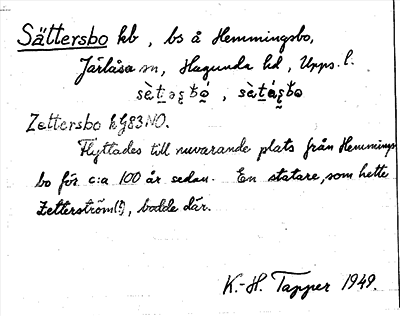 Sättersbo kb, bs å Hemmingsbo,
Järlåsa sn, Hagunda hd, Upps. l.
Zettersbo kG83NO.
Flyttades till nuvarande plats från Hemmings
bo för c:a 100 år sedan. En statare, som hette
Zetterström(!), bodde där.
K.-H. Tapper 1949.